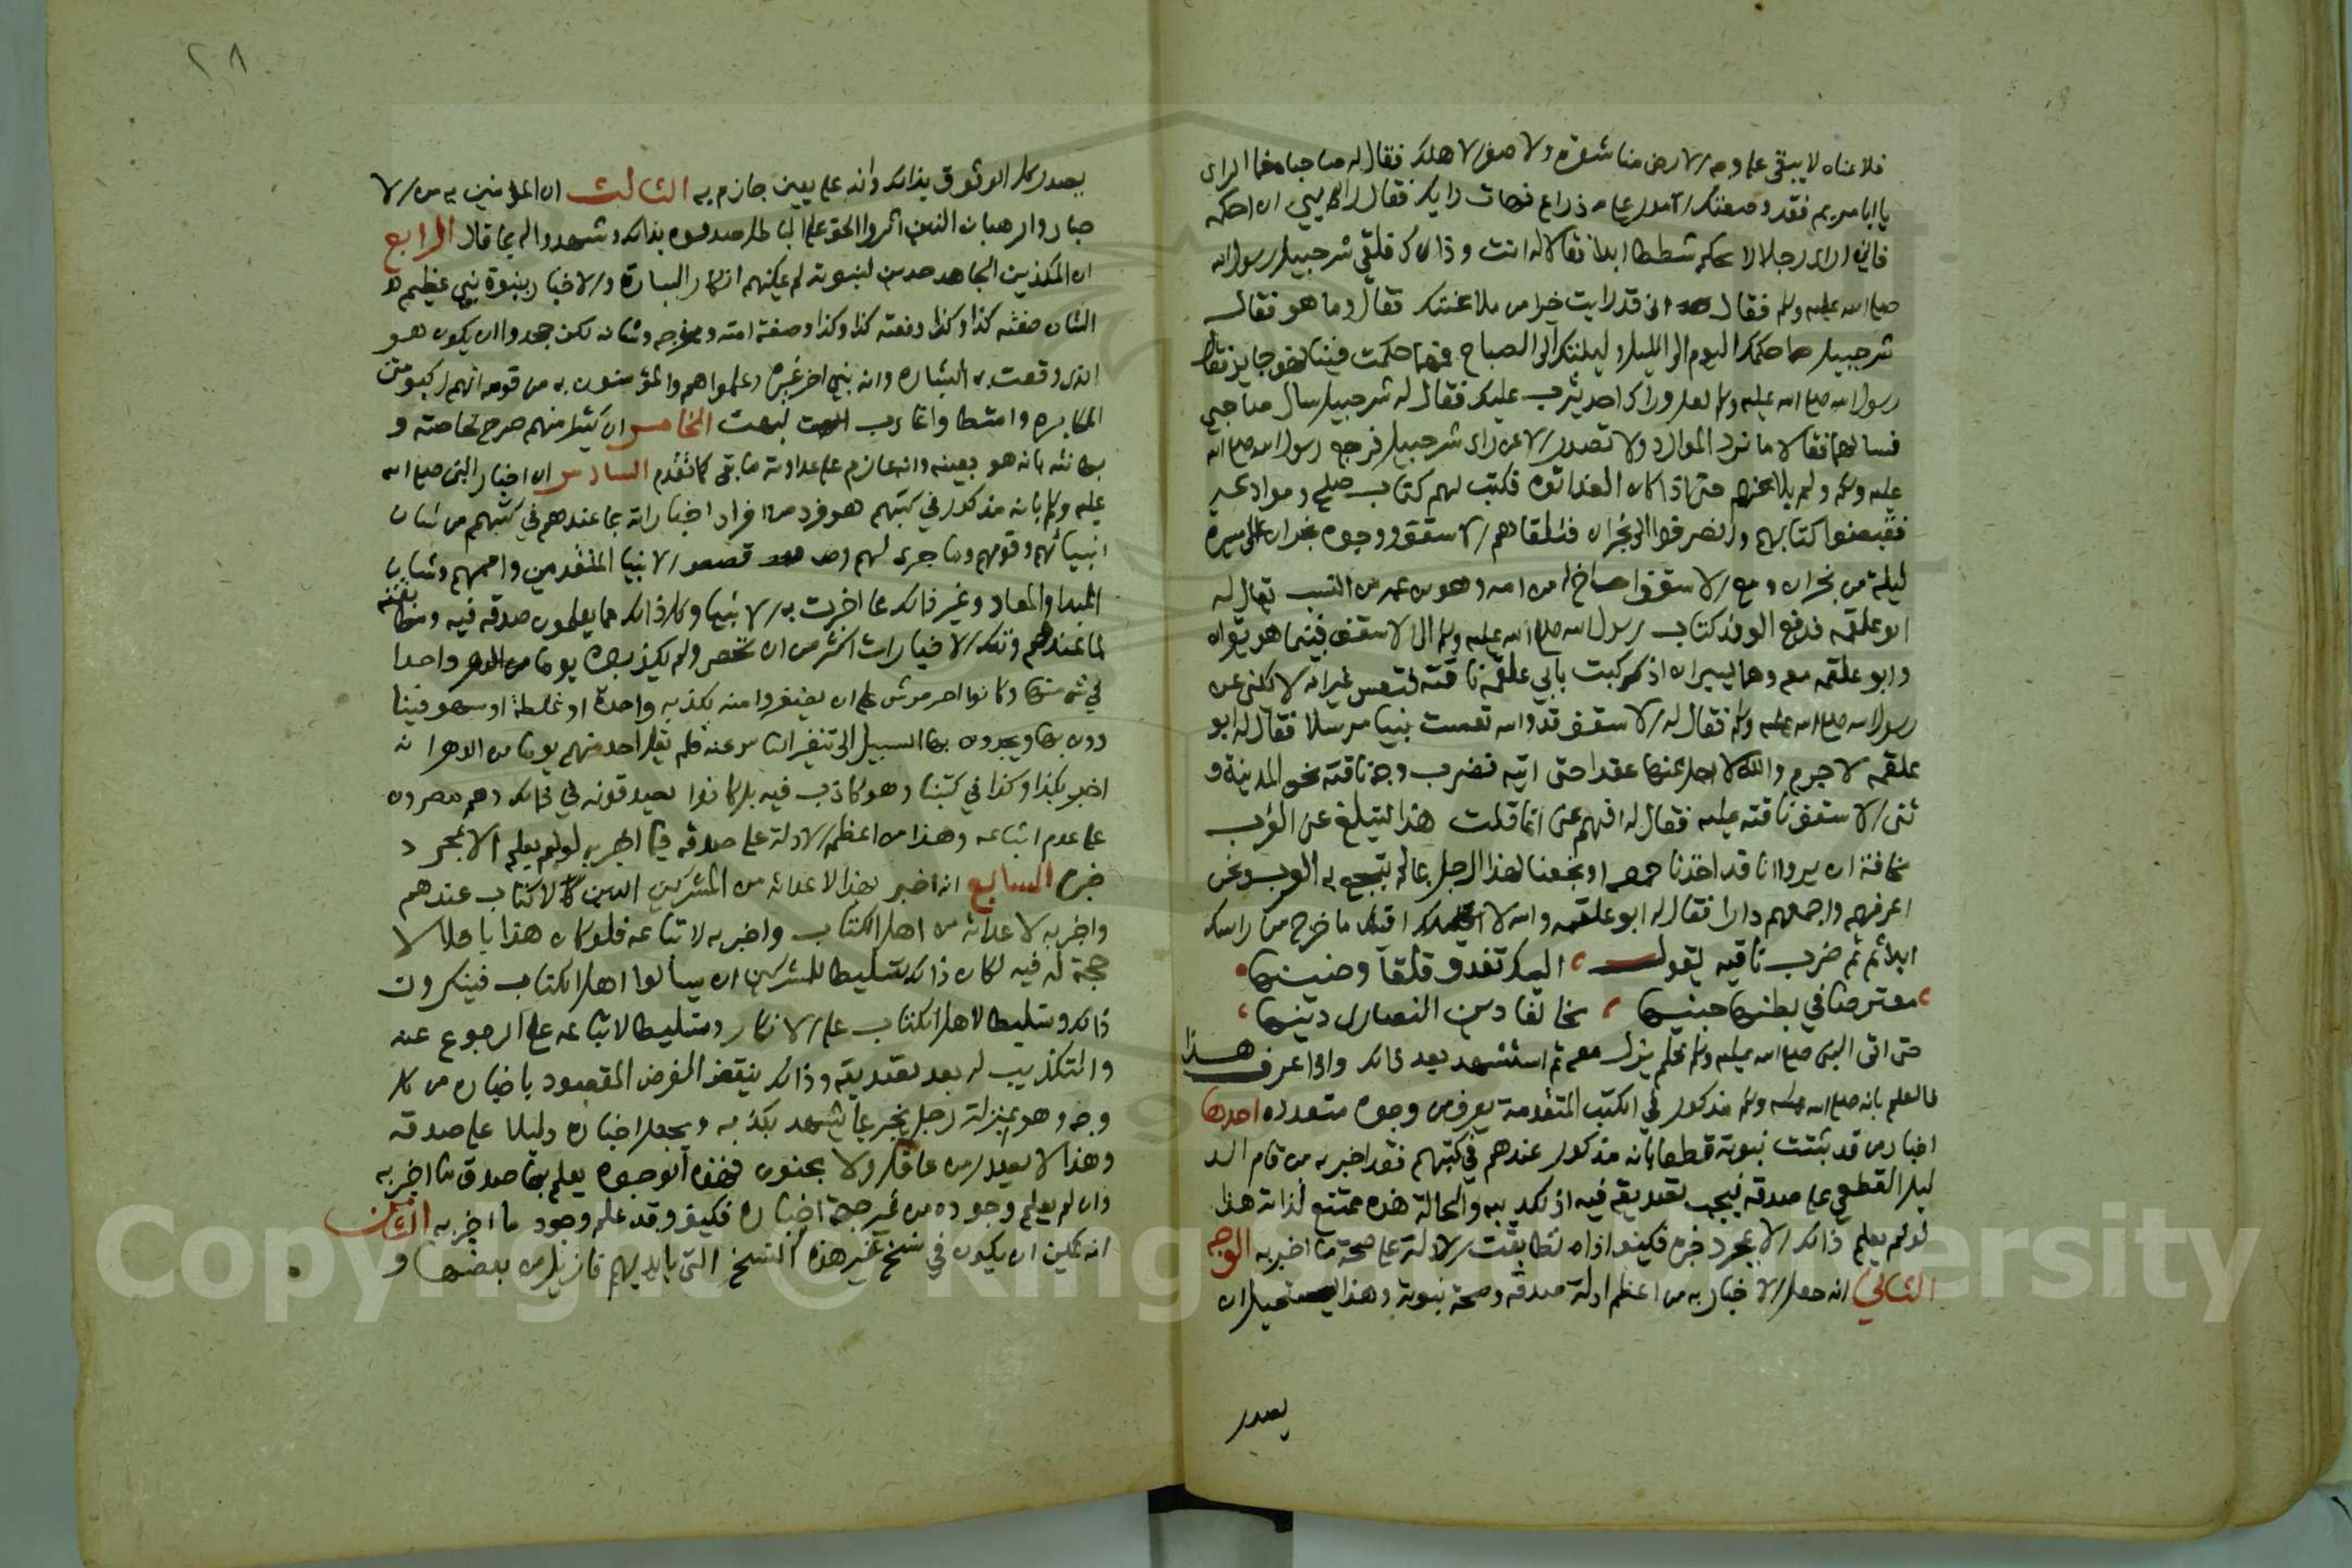 فلاعناه لا يبقى على وجه الارض منا شعرة ولا ظفر الا هلك فقال له صاحباه فما الراى
يا ابا مريم فقد وضعتك الامور على ذراع فهات رايك فقال رايى ان احكمه
فاني ارى رجلا لا يحكم شططا ابدا فقالا له انت وذاك فلقي شرحبيل رسول الله
صلى الله عليه وسلم فقال اني قد رايت خيرا من ملاعنتك فقال وما هو فقال
شرحبيل حكمك اليوم الى الليل وليلتك الى الصباح فمهما حكمت فينا فهو جايز فقال
رسول الله صلى الله عليه وسلم لعل وراك احد يثرب عليك فقال له شرحبيل سل صاحبي
فسالهما فقالا ما ترد الموارد ولا تصدر الا عن راى شرحبيل فرجع رسول الله صلى الله
عليه وسلم ولم يلاعنهم حتى اذا كان الغد اتوه فكتب لهم كتاب صلح وموادعة
فقبضوا كتابهم وانصرفوا الى نجران فتلقاهم الاسقف ووجوه نجران على مسيرة
ليلة من نجران ومع الاسقف اخ له من امه وهو بن عمه من النسب يقال له
ابو علقمه فدفع الوفد كتاب رسول الله صلى الله عليه وسلم الى الاسقف فبينما هو يقراه
وابو علقمه معه وهما يسيران اذ كبت بابي علقمه ناقته فتعس غير انه لا يكنى عن
رسول الله صلى الله عليه وسلم فقال له الاسقف قد والله تعست نبيا مرسلا فقال له ابو
علقمه لا جرم والله لا احل عنها عقدا حتى اتيه فضرب وجه ناقته نحو المدينة و
ثنى الاسقف ناقته عليه فقال له افهم عني انما قلت هذا لتبلغ عني العرب
مخافة ان يروا انا قد اخذنا او نجعنا لهذا الرجل بما لم تنجع به العرب ونحن
اعزهم واجمعهم دارا فقال له ابو علقمه والله لا اقيلك ما خرج من راسك
ابدا ثم ضرب ناقته يقول اليك تغدو قلقا وضينها
معترضا في بطنها جنينها مخالفا دين النصارى دينها
حتى اتى النبي صلى الله عليه وسلم فلم يزل معه ثم استشهد بعد ذلك واذا عرف هذا
فالعلم بانه صلى الله عليه وسلم مذكور في الكتب المتقدمة يعرف من وجوه متعدده احدها
اخبار من قد ثبتت نبوته قطعا بانه مذكور عندهم في كتبهم فقد اخبر به من قام الد
ليل القطعي على صدقه فيجب تصديقه فيه اذ تكذيبه والحالة هذه ممتنع لذاته هذا
لو لم يعلم ذلك الا بمجرد خبره فكيف اذا تطابقت الادلة على صحة ما اخبر به الوجه
الثاني انه جعل الاخبار به من اعظم ادلة صدقه وصحة نبوته وهذا يستحيل ان
يصدر
٢٨
يصدر الا من الوثوق بذلك وانه على يقين جازم به الثالث ان المؤمنين به من الا
حبار والرهبان الذين اثروا الحق على الباطل صدقوه بذلك وشهدوا له بما قال الرابع
ان المكذبين الجاحدين لنبوته لم يمكنهم انكار البشارة والاخبار بنبوة نبي عظيم
الشان صفته كذا وكذا ونعته كذا وكذا وصفة امته ومخرجه وشانه لكن جحدوا ان يكون هو
الذي وقعت به البشاره وانه نبي اخر غيره وعلموا هم والمؤمنون به من قومه انهم ركبوا متن
المكابره وامتطوا غارب البهت الخامس ان كثيرا منهم صرح لخاصته و
بطانته بانه هو بعينه وانه عازم على عداوته ما بقي كما تقدم السادس ان اخبار النبي صلى الله
عليه وسلم بانه مذكور في كتبهم هو فرد من افراد اخباراته بما عندهم في كتبهم من شان
انبيائهم وقومهم وما جرى لهم وقصص الانبيا المتقدمين واممهم وشان
المبدا والمعاد وغير ذلك مما اخبرت به الانبيا وكل ذلك مما يعلمون صدقه فيه ومطابقته
لما عندهم وتلك الاخبارات اكثر من ان تحصر ولم يكذبوه يوما واحدا
في شي منها وكانوا احرص شي على ان يظفروا منه بكذبه واحدة او غلطة او سهو فينا
دون بها ويجدون بها السبيل الى تنفير الناس عنه فلم يقل احد منهم يوما من الدهر انه
اخبر بكذا وكذا في كتبنا وهو كاذب فيه بل كانوا يصدقونه في ذلك وهم مصرون
على عدم اتباعه وهذا من اعظم الادلة على صدقه فيما اخبر به لو لم يعلم الا بمجرد
خبره السابع انه اخبر بهذا لاعدائه من المشركين الذين لا كتاب عندهم
واخبر به لاعدائه من اهل الكتاب واخبر به لاتباعه فلو كان هذا باطلا لا
حجة له فيه لكان ذلك تسليطا للمشركين ان يسالوا اهل الكتاب فينكرون
ذلك وتسليطا لاهل الكتاب على الانكار وتسليطا لاتباعه على الرجوع عنه
والتكذيب له بعد تصديقه وذلك ينقض الغرض المقصود باخباره من كل
وجه وهو بمنزلة رجل يخبر بما يشهد بكذبه ويجعل اخباره دليلا على صدقه
وهذا لا يصدر من عاقل ولا مجنون فهذه الوجوه يعلم بها صدق ما اخبر به
وان لم يعلم وجوده من غير جهة اخباره فكيف وقد علم وجود ما اخبر به الثامن
انه يمكن ان يكون في نسخ غير هذه النسخ التي بايديهم فازيل من بعضها و